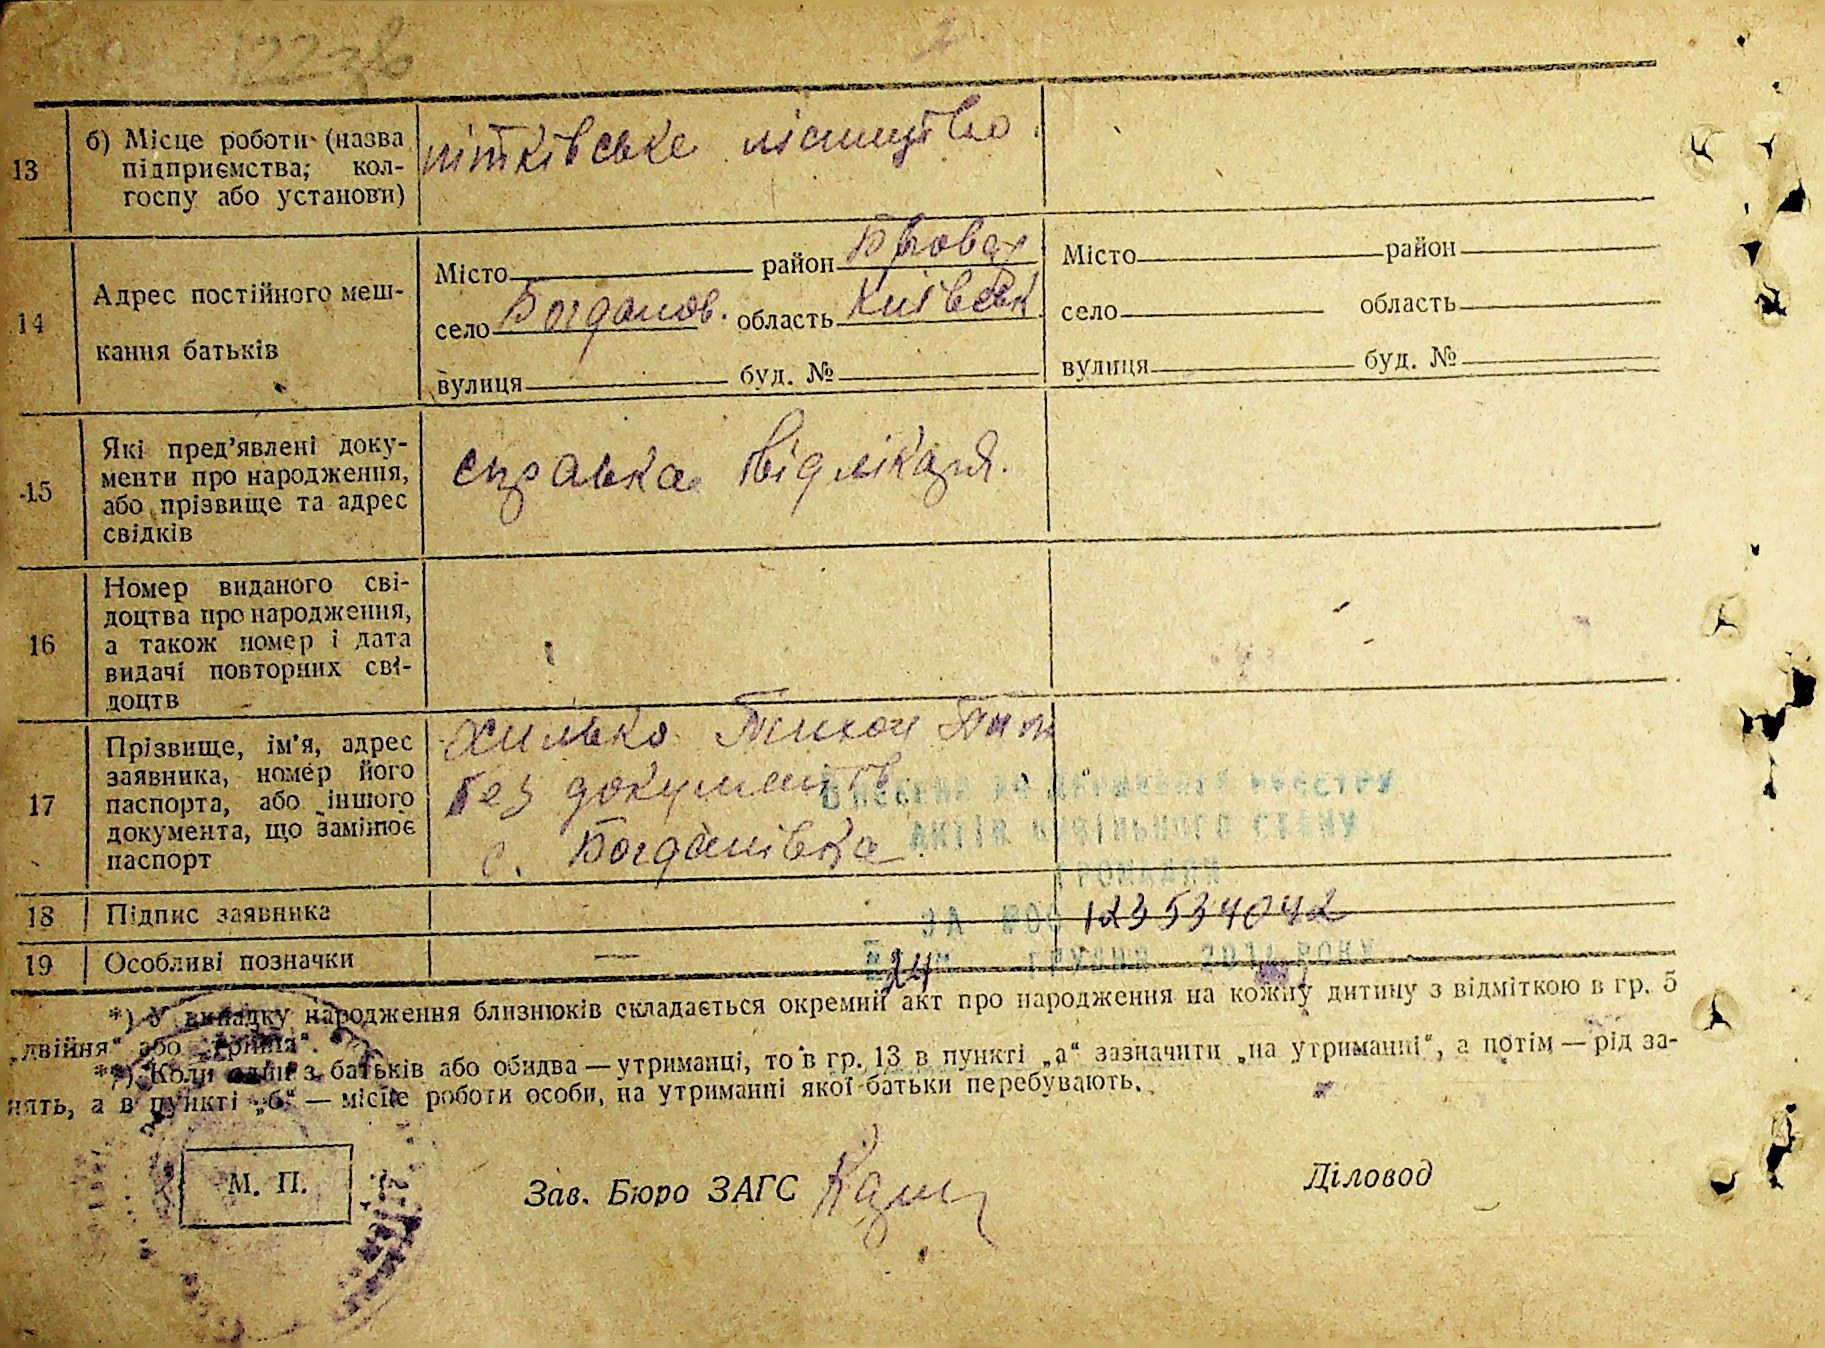 122зв
13
б) Місце роботи (назва
підприємства; кол-
госпу або установи)
лісництво
14
Адрес постійного меш-
кання батьків
Місто район Бровар
село Богданов. область Київськ
вулиця буд. №
Місто район
село область
вулиця буд. №
15
Які пред'явлені доку-
менти про народження,
або прізвище та адрес
свідків
справка від лікаря.
16
Номер виданого сві-
доцтва про народження,
а також номер і дата
видачі повторних сві-
доцтв
17
Прізвище, ім'я, адрес
заявника, номер його
паспорта, або іншого
документа, що замінює
паспорт
Хилько Тихон
без документів
с. Богданівка
ВНЕСЕНО ДО ДЕРЖАВНОГО РЕЄСТРУ
АКТІВ ЦИВІЛЬНОГО СТАНУ
ГРОМАДЯН
18
Підпис заявника
ЗА №00 123534042
19
Особливі позначки
—
"24" ГРУДНЯ 2014 РОКУ
*) У випадку народження близнюків складається окремий акт про народження на кожну дитину з відміткою в гр. 5
„двійня“ або „трийня“.
**) Коли один з батьків або обидва — утриманці, то в гр. 13 в пункті „а“ зазначити „на утриманні“, а потім — рід за-
нять, а в пункті „б“ — місце роботи особи, на утриманні якої батьки перебувають.
М. П.
Зав. Бюро ЗАГС
Діловод